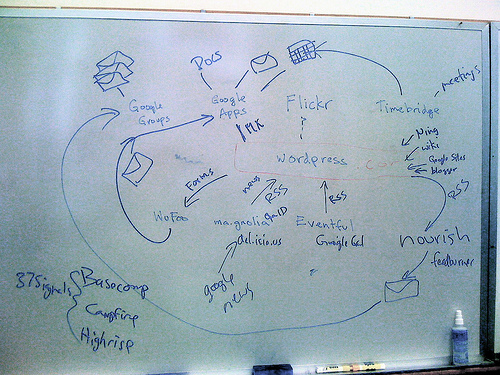 Docs
meetings
Google
Groups
Google
Apps
Flickr
Timebridge
Ning
wiki
Google Sites
blogger
wordpress
Forms
news
RSS
RSS
RSS
WuFoo
ma.gnolia
del.icio.us
Eventful
Google Cal
nourish
feedburner
google
news
37Signals
Basecamp
Campfire
Highrise